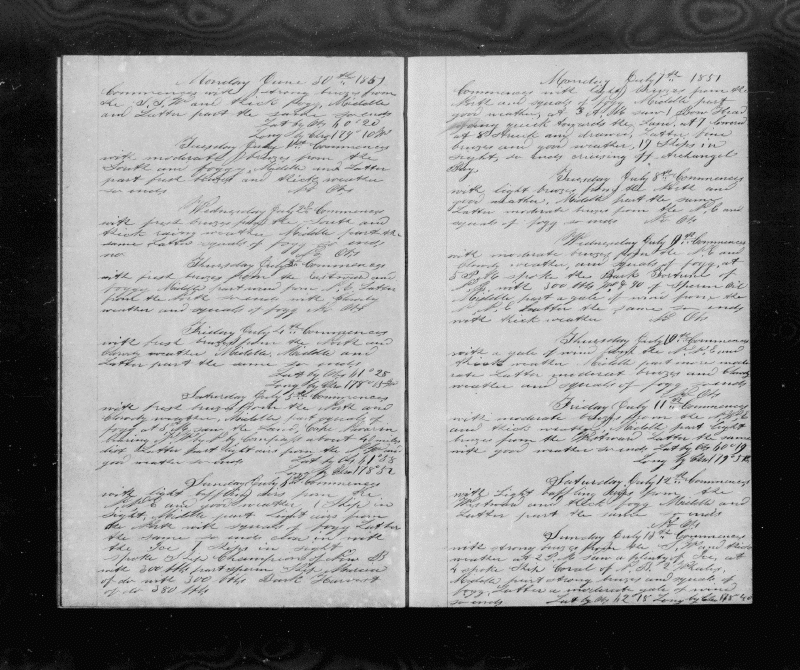 Monday June 30th 1851
Commences with strong breezes from
the S.S.W and thick fogg, Middle
and Latter part the same so ends
Lat by Obs 60°20
Long by Chro 179°10
Tuesday July 1st Commences
with moderate breezes from the
South and foggy, Middle and Latter
part fresh breezes and thick weather
so ends No Obs
Wednesday July 2nd Commences
with fresh breezes from the South and
thick rainy weather Middle part the
same Latter squals of fogg so ends
No Obs
Thursday July 3d Commences
with fresh breezes from the Eastward and
foggy Middle part wind from N.E. Latter
from the North so ends with cloudy
weather and squals of fogg No Obs
Friday July 4th Commences
with fresh breezes from the North and
cloudy weather Middle and
Latter part the same so ends
Lat by Obs 61°25
Long by Chro 178°
Saturday July 5th Commences
with fresh breezes from the North and
cloudy weather, Middle part squals of
fogg at 8 saw the Land, Cape
bearing by Compass about miles
dist Latter part light airs from the
good weather so ends Lat by Obs 61°
Long by Chro 178°52
Sunday July 6th Commences
with light baffling airs from the
N.E and good weather, 1 Ship in
sight, Middle part light airs from
the North with squals of fogg Latter
the same so ends close in with
the Ice 7 Ships in sight
Spoke Ship Champion of
with 300 bbls part sperm Ship
of do with 300 bbls Bark Harvest
of do 280 bbls
Monday July 7th 1851
Commences with light breezes from the
North and squals of fogg Middle part
good weather, at 3 A.M saw 1 Bow Head
going quick towards the Land, at 7 lowered
at 8 struck and drawed, Latter fine
breezes and good weather, 19 Ships in
sight, so ends cruising off Archangel
Bay
Tuesday July 8th Commences
with light breezes from the North and
good weather, Middle part the same
Latter moderate breezes from the N.E and
squals of fogg so ends No Obs
Wednesday July 9th Commences
with moderate breezes from the N.E and
cloudy weather, and squals of fogg, at
5 P.M spoke the Bark Fortune of
with 300 bbls & 90 of Sperm Oil
Middle part a gale of wind from the
N.N.E Latter the same so ends
with thick weather No Obs
Thursday July 10th Commences
with a gale of wind from the N.N.E and
thick weather Middle part more mode
rate Latter moderate breezes and cloudy
weather and squals of fogg so ends
No Obs
Friday July 11th Commences
with moderate breezes from the N.N.E
and thick weather, Middle part light
breezes from the Westward Latter the same
with good weather so ends Lat by Obs 60°49
Long by Chro 179°
Saturday July 12th Commences
with light baffling airs from the
Westward and thick fogg Middle and
Latter part the same so ends
No Obs
Sunday July 13th Commences
with strong breezes from the S.W and thick
weather at 2 P.M saw a plenty of Ice, at
4 spoke Ship Coral of N.B. 2 Whales,
Middle part strong breezes and squals of
fogg, Latter a moderate gale of wind
so ends Lat by Obs 62°18 Long by Chro 178°40